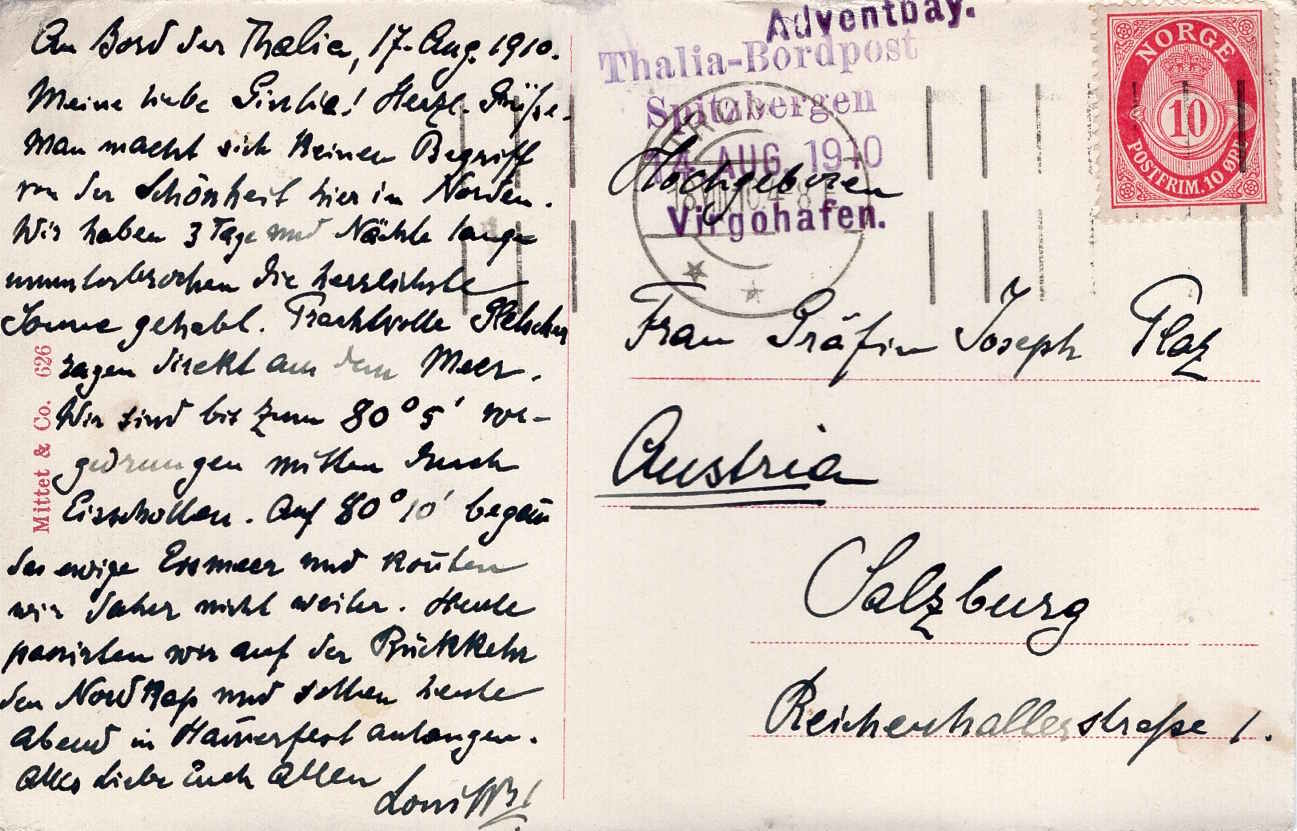 An Bord der Thalia, 17. Aug. 1910.
Meine liebe Herzl. Grüße.
Man macht sich keinen Begriff
von der Schönheit hier im Norden.
Wir haben 3 Tage und Nächte lang
ununterbrochen die herrlichste
Sonne gehabt. Prachtvolle Gletscher
ragen direkt aus dem Meer.
Wir sind bis zum 80° 5' vor-
gedrungen mitten durch
Eisschollen. Auf 80° 10' begann
das ewige Eismeer und konnten
wir daher nicht weiter. Heute
passirten wir auf der Rückkehr
den Nordkap und sollen heute
Abend in Hammerfest anlangen.
Alles Liebe Euch Allen
Mittet & Co. 626
Adventbay.
Thalia-Bordpost
Spitzbergen
14 AUG. 1910
Virgohafen.
NORGE
10
POSTFRIM. 10 ØRE
Hochgeboren
Frau Gräfin Joseph Platz
Austria
Salzburg
Reichenhallerstraße 1.